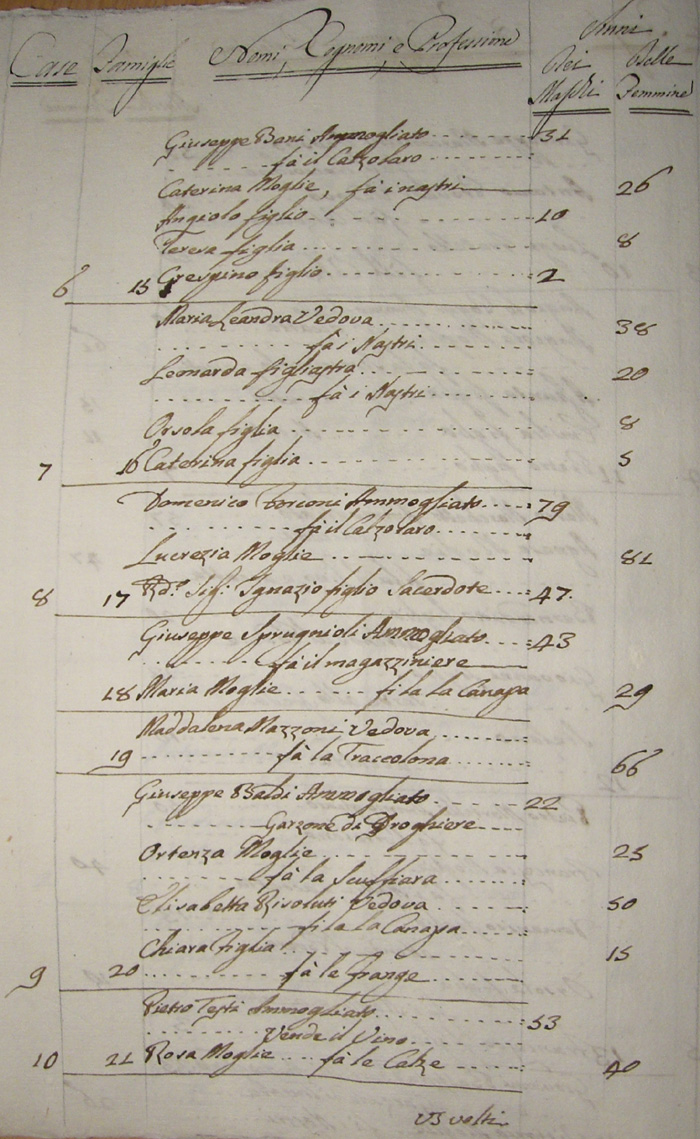 Anni
Case Famiglie Nomi, Cognomi, e Professioni Dei Delle
Maschi Femmine
Giuseppe Bani Ammogliato 31
fà il Calzolaro
Caterina Moglie, fà i nastri 26
Angiolo figlio 10
Teresa figlia 8
6 15 Crespino figlio 2
Maria Leandra Vedova 38
fà i Nastri
Leonarda figliastra 20
fà i Nastri
Orsola figlia 8
7 16 Caterina figlia 5
Domenico Torconi Ammogliato 79
fà il Calzolaro
Lucrezia Moglie 81
8 17 Rd.º Sig. Ignazio figlio Sacerdote 47.
Giuseppe Sprugnioli Ammogliato 43
fà il magazziniere
18 Maria Moglie fila la Canapa 29
Maddalena Mazzoni Vedova
19 fà la Traccolona 66
Giuseppe Baldi Ammogliato 22
Garzone di Droghiere
Ortenza Moglie 25
fà la Scuffiara
Elisabetta Risoluti Vedova 50
fila la Canapa
Chiara Figlia 15
9 20 fà le frange
Pietro Testi Ammogliato 53
Vende il Vino
10 21 Rosa Moglie fà le Calze 40
volti